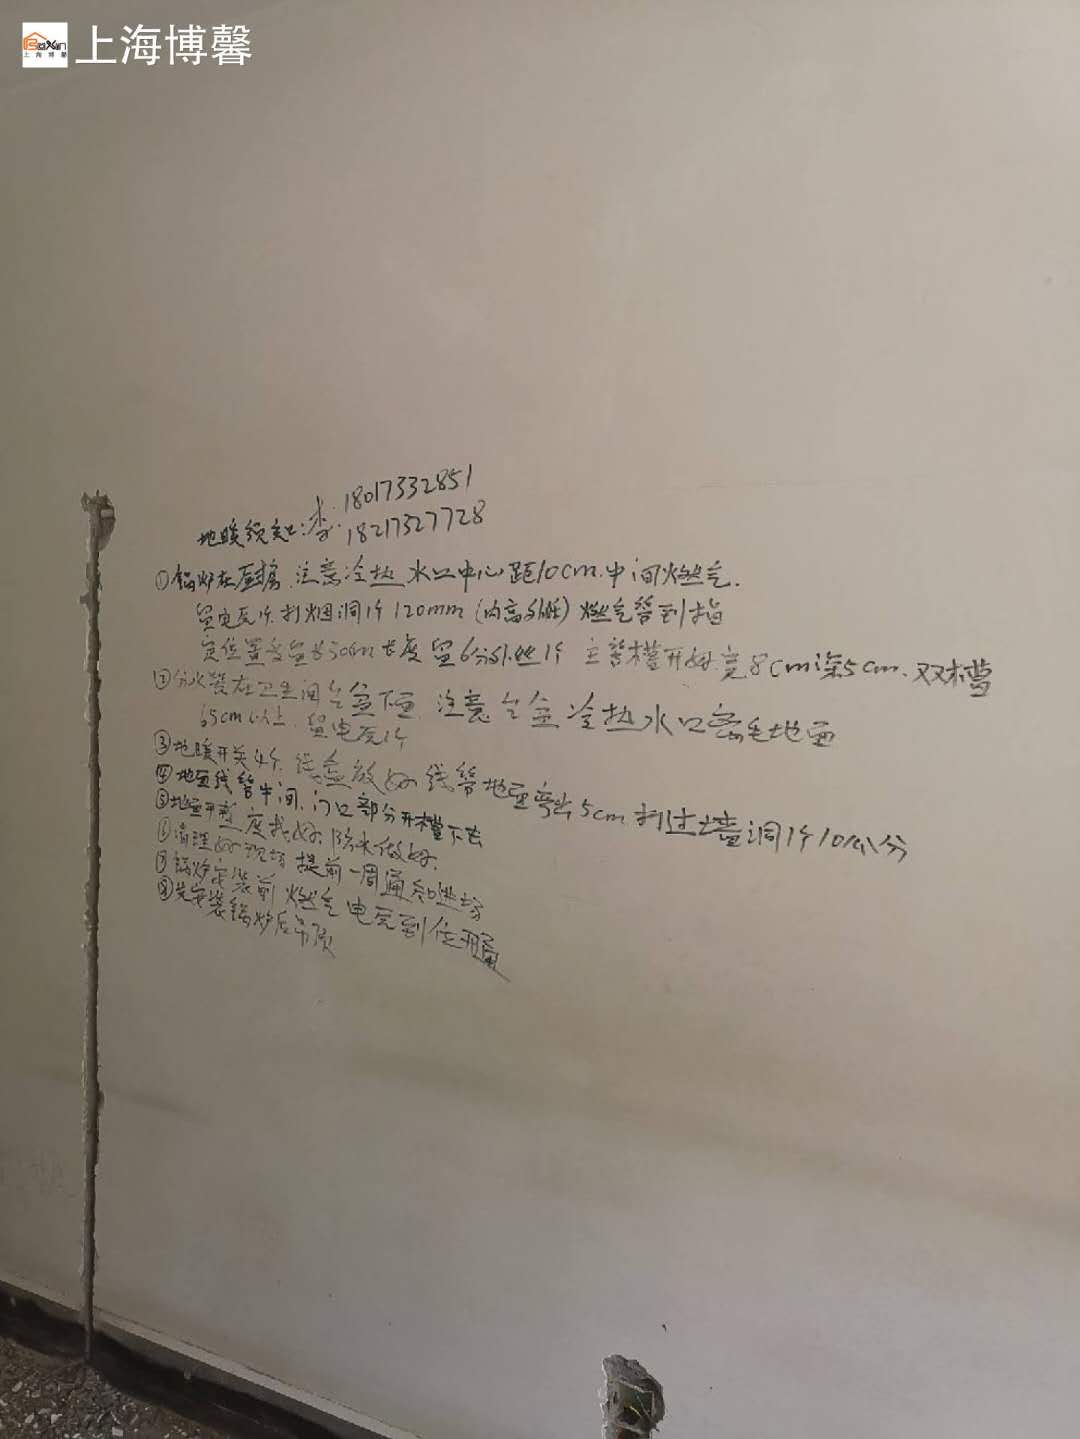 BoXin
上海博馨
上海博馨
18017332851
地暖须知:李:18217327728
①锅炉在厨房.注意冷热水口中心距10cm.中间燃气.
留电瓦1个.打烟洞1个120mm(内高外低)燃气管到指
定位置多留长30cm长度留6分外丝1个 主管槽开好宽8cm深5cm.双槽
②分水器在卫生间台盆下面.注意台盆冷热水口离毛地面
65cm以上.留电瓦1个
③地暖开关4个.线盒放好线管地面弯出5cm打过墙洞1个10公分
④地面线管中间.门口部分开槽下去
⑤地面开裂 度找好.防水做好.
⑥清理好现场提前一周通知进场
⑦锅炉安装前燃气电瓦到位开通
⑧先安装锅炉后吊顶